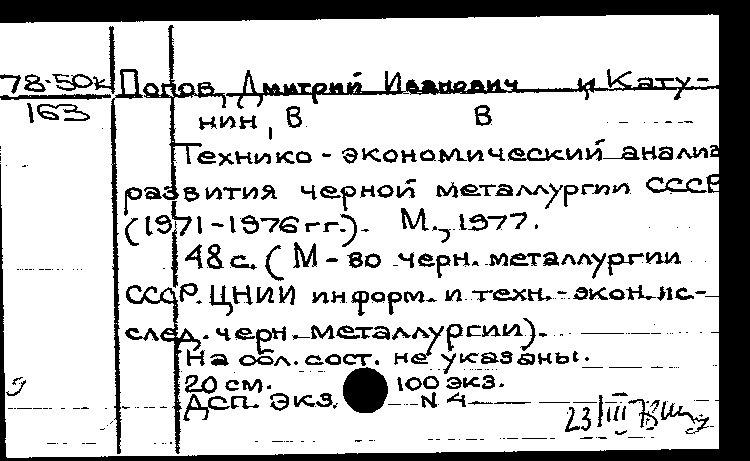 78-50к Попов, Дмитрий Иванович и Кату-
163 нин, В В
Технико-экономический анализ
развития черной металлургии СССР
(1971-1976 гг.). М., 1977.
48 с. (М-во черн. металлургии
СССР. ЦНИИ информ. и техн.-экон. ис-
след. черн. металлургии).
На обл. сост. не указаны.
20 см. 100 экз.
ДСП. Экз. N 4
23/III 78